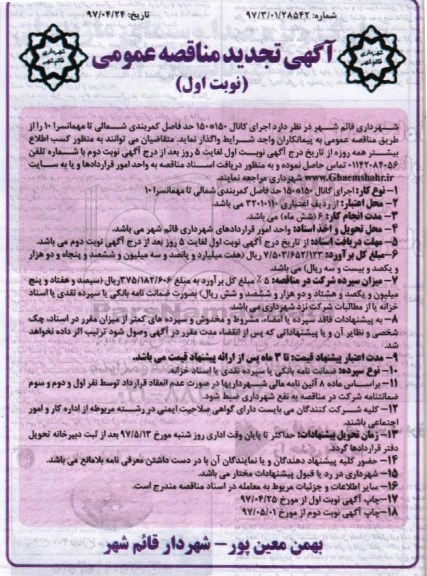 شماره: ۹۷/۳/۰۱/۲۸۵۴۲
تاریخ: ۹۷/۰۴/۲۴
آگهی تجدید مناقصه عمومی
(نوبت اول)
شهرداری قائم شهر
شهرداری قائم شهر
شهرداری قائم شهر در نظر دارد اجرای کانال ۱۵۰*۱۵۰ حد فاصل کمربندی شمالی تا مهمانسرا ۱۰ را از
طریق مناقصه عمومی به پیمانکاران واجد شرایط واگذار نماید. متقاضیان می توانند به منظور کسب اطلاع
بیشتر همه روزه از تاریخ درج آگهی نوبت اول لغایت ۵ روز بعد از درج آگهی نوبت دوم با شماره تلفن
۰۱۱۴۲۰۸۴۰۵۶ تماس حاصل نموده و به منظور دریافت اسناد مناقصه به واحد امور قراردادها و یا به سایت
www.Ghaemshahr.ir شهرداری مراجعه نمایند.
۱- نوع کار: اجرای کانال ۱۵۰*۱۵۰ حد فاصل کمربندی شمالی تا مهمانسرا ۱۰
۲- محل اعتبار: از ردیف اعتباری ۳۲۰۱۰۱۱۰ می باشد.
۳- مدت انجام کار: ۶ (شش ماه) می باشد.
۴- محل تحویل و اخذ اسناد: واحد امور قراردادهای شهرداری قائم شهر می باشد.
۵- مهلت دریافت اسناد: از تاریخ درج آگهی نوبت اول لغایت ۵ روز بعد از درج آگهی نوبت دوم می باشد.
۶- مبلغ کل برآورد: ۷/۵۰۳/۶۵۲/۱۲۳ ریال (هفت میلیارد و پانصد و سه میلیون و ششصد و پنجاه و دو هزار
و یکصد و بیست و سه ریال) می باشد.
۷- میزان سپرده شرکت در مناقصه: ۵٪ مبلغ کل برآورد به مبلغ ۳۷۵/۱۸۲/۶۰۶ریال (سیصد و هفتاد و پنج
میلیون و یکصد و هشتاد و دو هزار و ششصد و شش ریال) بصورت ضمانت نامه بانکی یا سپرده نقدی یا اسناد
خزانه یا از مطالبات شرکت نزد شهرداری می باشد.
۸- به پیشنهادات فاقد سپرده یا امضاء، مشروط و مخدوش و سپرده های کمتر از میزان مقرر در اسناد، چک
شخصی و نظایر آن و یا پیشنهاداتی که پس از انقضاء مدت مقرر در آگهی وصول شود ترتیب اثر داده نخواهد
شد.
۹- مدت اعتبار پیشنهاد قیمت: تا ۳ ماه پس از ارائه پیشنهاد قیمت می باشد.
۱۰- نوع سپرده: ضمانت نامه بانکی یا سپرده نقدی یا اسناد خزانه.
۱۱- براساس ماده ۸ آئین نامه مالی شهرداریها در صورت عدم انعقاد قرارداد توسط نفر اول و دوم و سوم
ضمانتنامه شرکت در مناقصه به نفع شهرداری ضبط شود.
۱۲- کلیه شرکت کنندگان می بایست دارای گواهی صلاحیت ایمنی در رشته مربوطه از اداره کار و امور
اجتماعی باشند.
۱۳- زمان تحویل پیشنهادات: حداکثر تا پایان وقت اداری روز شنبه مورخ ۹۷/۵/۱۳ بعد از ثبت دبیرخانه تحویل
دفتر قراردادها گردد.
۱۴- حضور کلیه پیشنهاد دهندگان و یا نمایندگان آن با در دست داشتن معرفی نامه بلامانع می باشد.
۱۵- شهرداری در رد یا قبول پیشنهادات مختار می باشد.
۱۶- سایر اطلاعات و جزئیات مربوط به معامله در اسناد مناقصه مندرج است.
۱۷-چاپ آگهی نوبت اول از مورخ ۹۷/۰۴/۲۵
۱۸-چاپ آگهی نوبت دوم از مورخ ۹۷/۰۵/۰۱
بهمن معین پور - شهردار قائم شهر